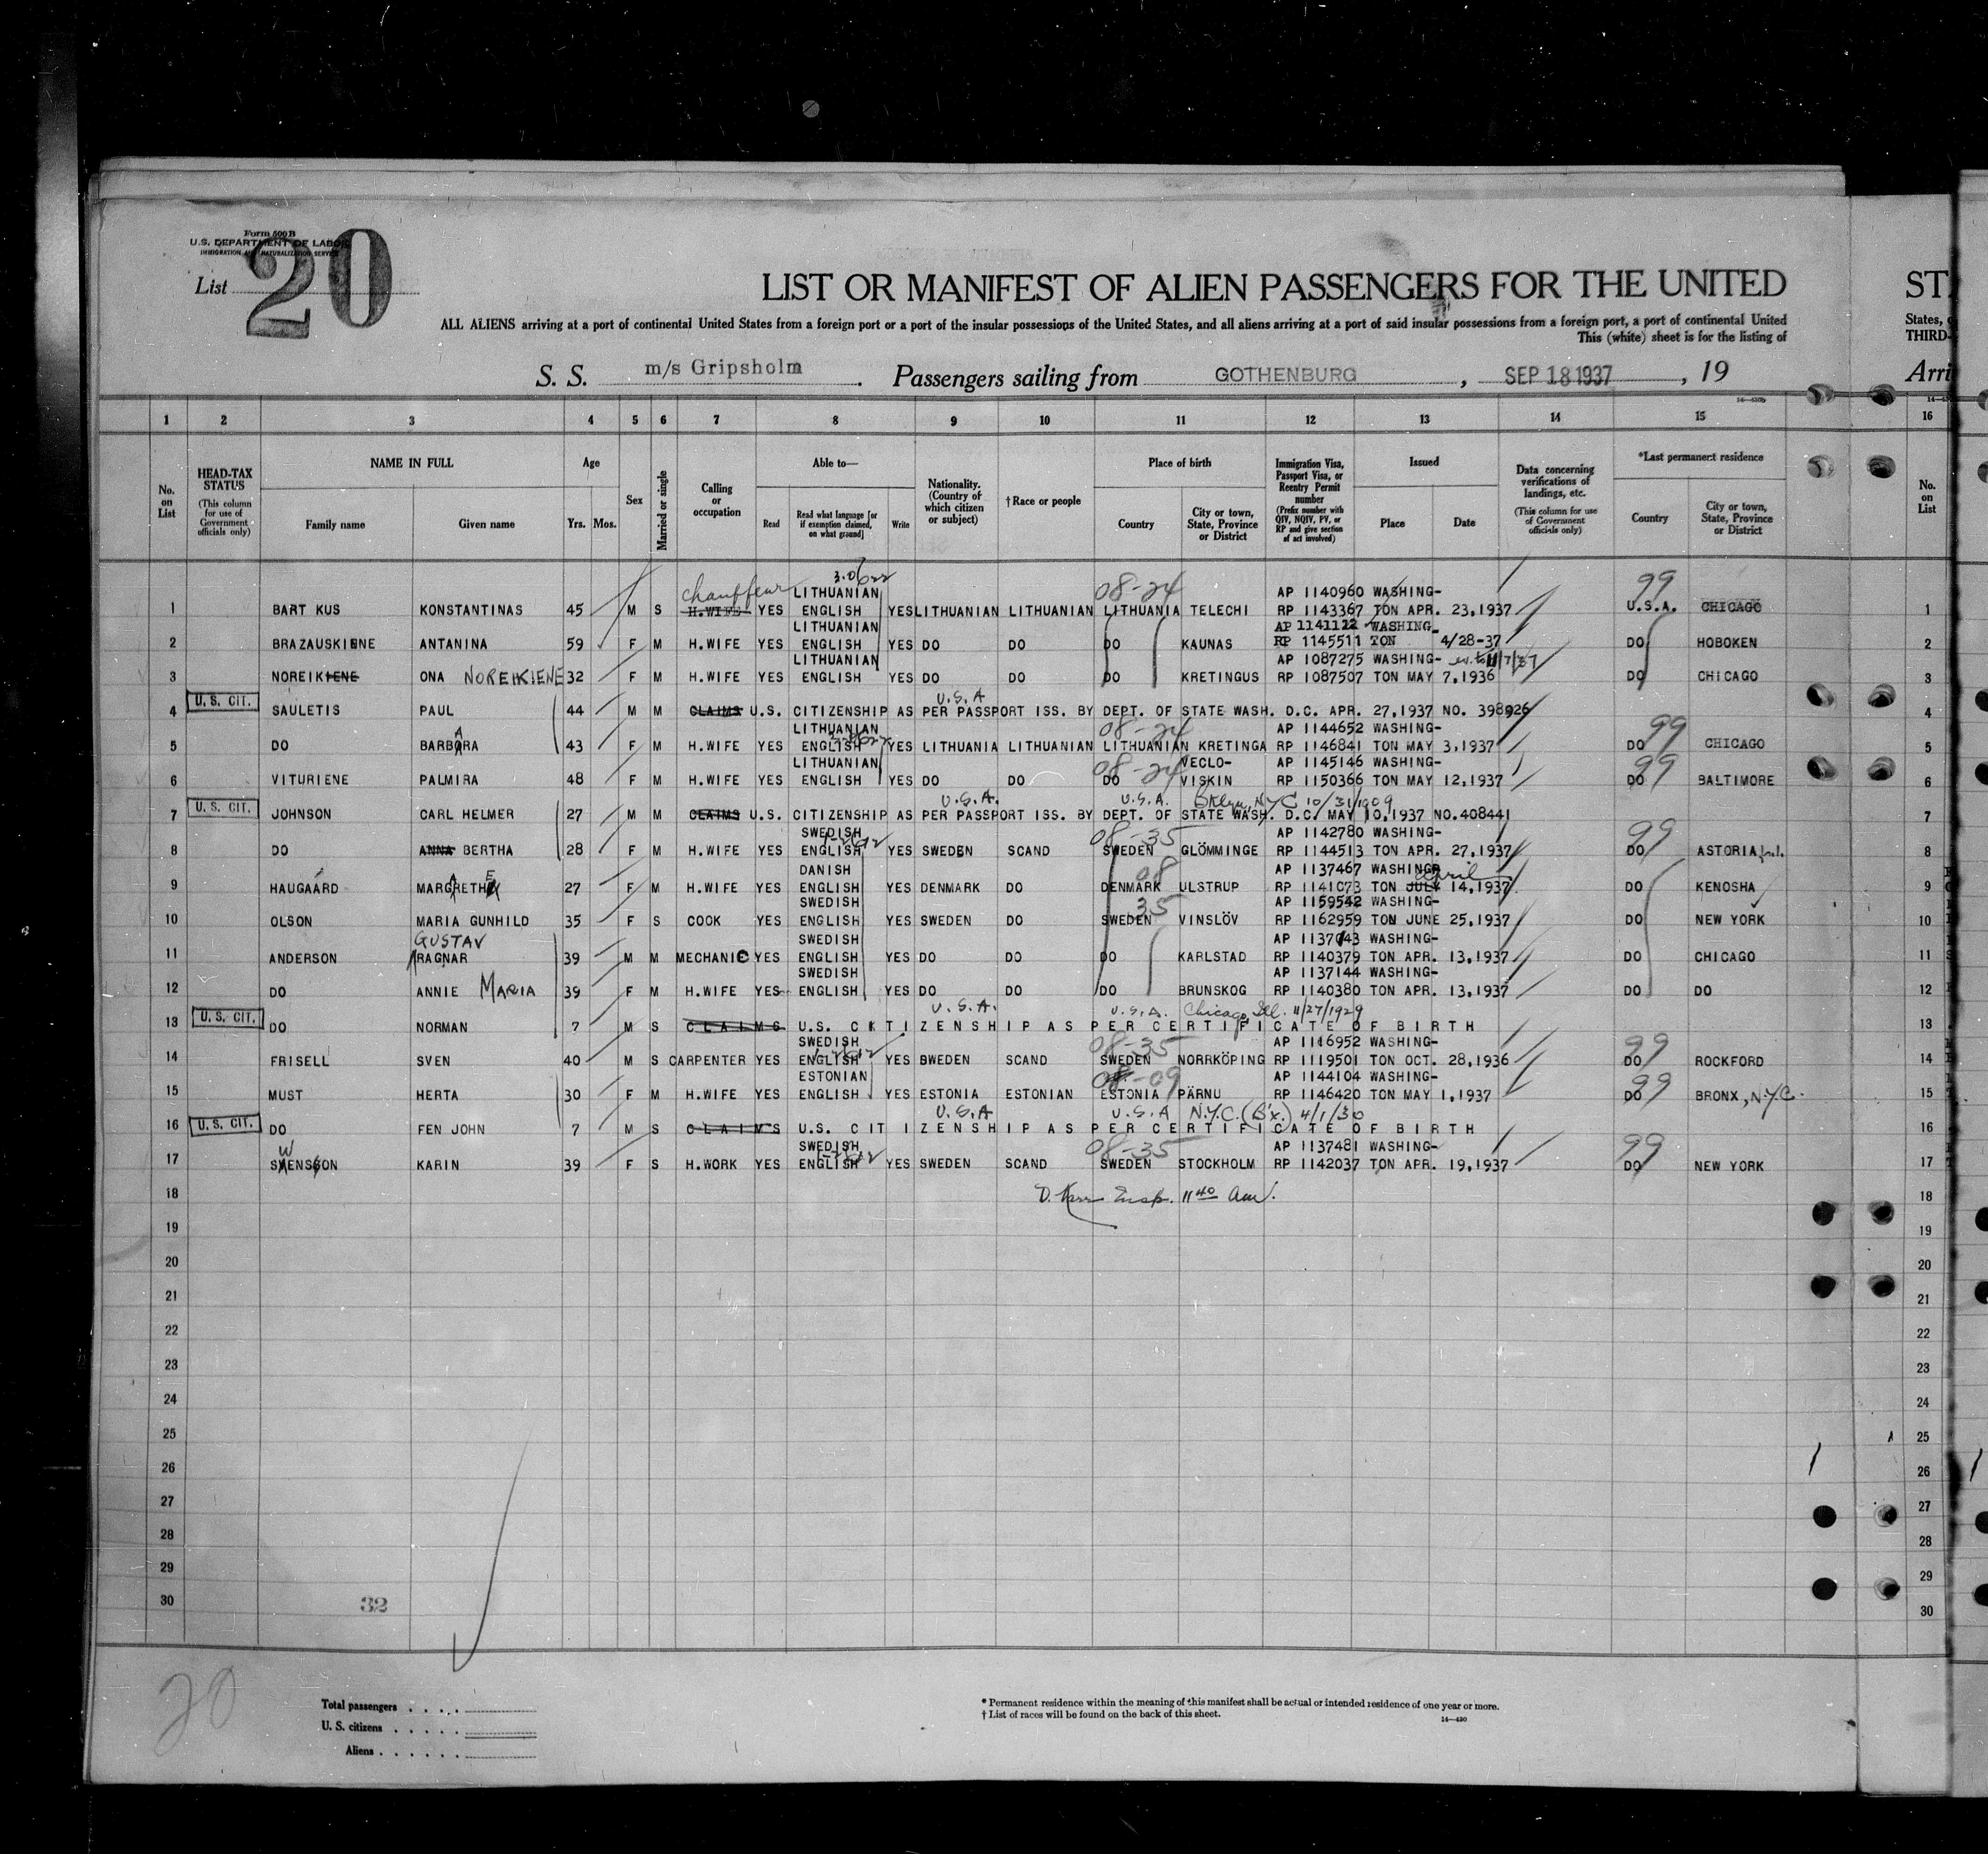 Form 500 B
U.S. DEPARTMENT OF LABOR
IMMIGRATION AND NATURALIZATION SERVICE
List 20
LIST OR MANIFEST OF ALIEN PASSENGERS FOR THE UNITED ST
ALL ALIENS arriving at a port of continental United States from a foreign port or a port of the insular possessions of the United States, and all aliens arriving at a port of said insular possessions from a foreign port, a port of continental United States,
This (white) sheet is for the listing of THIRD-
S. S. m/s Gripsholm. Passengers sailing from GOTHENBURG, SEP 18 1937, 19 Arri
1 2 3 4 5 6 7 8 9 10 11 12 13 14 15 16
No. on List
HEAD-TAX STATUS (This column for use of Government officials only)
NAME IN FULL
Family name Given name
Age
Yrs. Mos.
Sex
Married or single
Calling or occupation
Able to—
Read Read what language [or if exemption claimed, on what ground] Write
Nationality. (Country of which citizen or subject)
†Race or people
Place of birth
Country City or town, State, Province or District
Immigration Visa, Passport Visa, or Reentry Permit number (Prefix number with QIV, NQIV, PV, or RP and give section of act involved)
Issued
Place Date
Data concerning verifications of landings, etc. (This column for use of Government officials only)
*Last permanent residence
Country City or town, State, Province or District
No. on List
chauffeur LITHUANIAN 08-24 AP 1140960 WASHING- 99
1 BART KUS KONSTANTINAS 45 M S H.WIFE YES ENGLISH YES LITHUANIAN LITHUANIAN LITHUANIA TELECHI RP 1143367 TON APR. 23,1937 U.S.A. CHICAGO 1
LITHUANIAN AP 1141122 WASHING-
2 BRAZAUSKIENE ANTANINA 59 F M H.WIFE YES ENGLISH YES DO DO DO KAUNAS RP 1145511 TON 4/28-37 DO HOBOKEN 2
LITHUANIAN AP 1087275 WASHING-
3 NOREIKIENE ONA NOREIKIENE 32 F M H.WIFE YES ENGLISH YES DO DO DO KRETINGUS RP 1087507 TON MAY 7,1936 DO CHICAGO 3
U.S. CIT. U.S.A
4 SAULETIS PAUL 44 M M CLAIMS U.S. CITIZENSHIP AS PER PASSPORT ISS. BY DEPT. OF STATE WASH. D.C. APR. 27,1937 NO. 398926 4
A LITHUANIAN 08-24 AP 1144652 WASHING- 99
5 DO BARBARA 43 F M H.WIFE YES ENGLISH YES LITHUANIA LITHUANIAN LITHUANIAN KRETINGA RP 1146841 TON MAY 3,1937 DO CHICAGO 5
LITHUANIAN 08-24 VECLO- AP 1145146 WASHING- 99
6 VITURIENE PALMIRA 48 F M H.WIFE YES ENGLISH YES DO DO DO VISKIN RP 1150366 TON MAY 12,1937 DO BALTIMORE 6
U.S. CIT. U.S.A. U.S.A. Bklyn, NYC 10/31/1909
7 JOHNSON CARL HELMER 27 M M CLAIMS U.S. CITIZENSHIP AS PER PASSPORT ISS. BY DEPT. OF STATE WASH. D.C. MAY 10,1937 NO.408441 7
SWEDISH 08-35 AP 1142780 WASHING- 99
8 DO ANNA BERTHA 28 F M H.WIFE YES ENGLISH YES SWEDEN SCAND SWEDEN GLÖMMINGE RP 1144513 TON APR. 27,1937 DO ASTORIA L.I. 8
A E DANISH 08 AP 1137467 WASHING- April
9 HAUGAARD MARGRETHE 27 F M H.WIFE YES ENGLISH YES DENMARK DO DENMARK ULSTRUP RP 1141073 TON JULY 14,1937 DO KENOSHA 9
SWEDISH 35 AP 1159542 WASHING-
10 OLSON MARIA GUNHILD 35 F S COOK YES ENGLISH YES SWEDEN DO SWEDEN VINSLÖV RP 1162959 TON JUNE 25,1937 DO NEW YORK 10
GUSTAV SWEDISH AP 1137043 WASHING-
11 ANDERSON RAGNAR 39 M M MECHANIC YES ENGLISH YES DO DO DO KARLSTAD RP 1140379 TON APR. 13,1937 DO CHICAGO 11
SWEDISH AP 1137144 WASHING-
12 DO ANNIE MARIA 39 F M H.WIFE YES ENGLISH YES DO DO DO BRUNSKOG RP 1140380 TON APR. 13,1937 DO DO 12
U.S. CIT. U.S.A. U.S.A. Chicago, Ill. 11/27/1929
13 DO NORMAN 7 M S CLAIMS U.S. CITIZENSHIP AS PER CERTIFICATE OF BIRTH 13
SWEDISH 08-35 AP 1116952 WASHING- 99
14 FRISELL SVEN 40 M S CARPENTER YES ENGLISH YES BWEDEN SCAND SWEDEN NORRKÖPING RP 1119501 TON OCT. 28,1936 DO ROCKFORD 14
ESTONIAN 08-09 AP 1144104 WASHING- 99
15 MUST HERTA 30 F M H.WIFE YES ENGLISH YES ESTONIA ESTONIAN ESTONIA PÄRNU RP 1146420 TON MAY 1,1937 DO BRONX, N.Y.C. 15
U.S. CIT. U.S.A U.S.A N.Y.C. (B'x.) 4/1/30
16 DO FEN JOHN 7 M S CLAIMS U.S. CITIZENSHIP AS PER CERTIFICATE OF BIRTH 16
W SWEDISH 08-35 AP 1137481 WASHING- 99
17 SVENSSON KARIN 39 F S H.WORK YES ENGLISH YES SWEDEN SCAND SWEDEN STOCKHOLM RP 1142037 TON APR. 19,1937 DO NEW YORK 17
18 Insp. 11 40 Am. 18
19 19
20 20
21 21
22 22
23 23
24 24
25 25
26 26
27 27
28 28
29 29
30 32 30
20
Total passengers
U. S. citizens
Aliens
* Permanent residence within the meaning of this manifest shall be actual or intended residence of one year or more.
† List of races will be found on the back of this sheet.
14—430